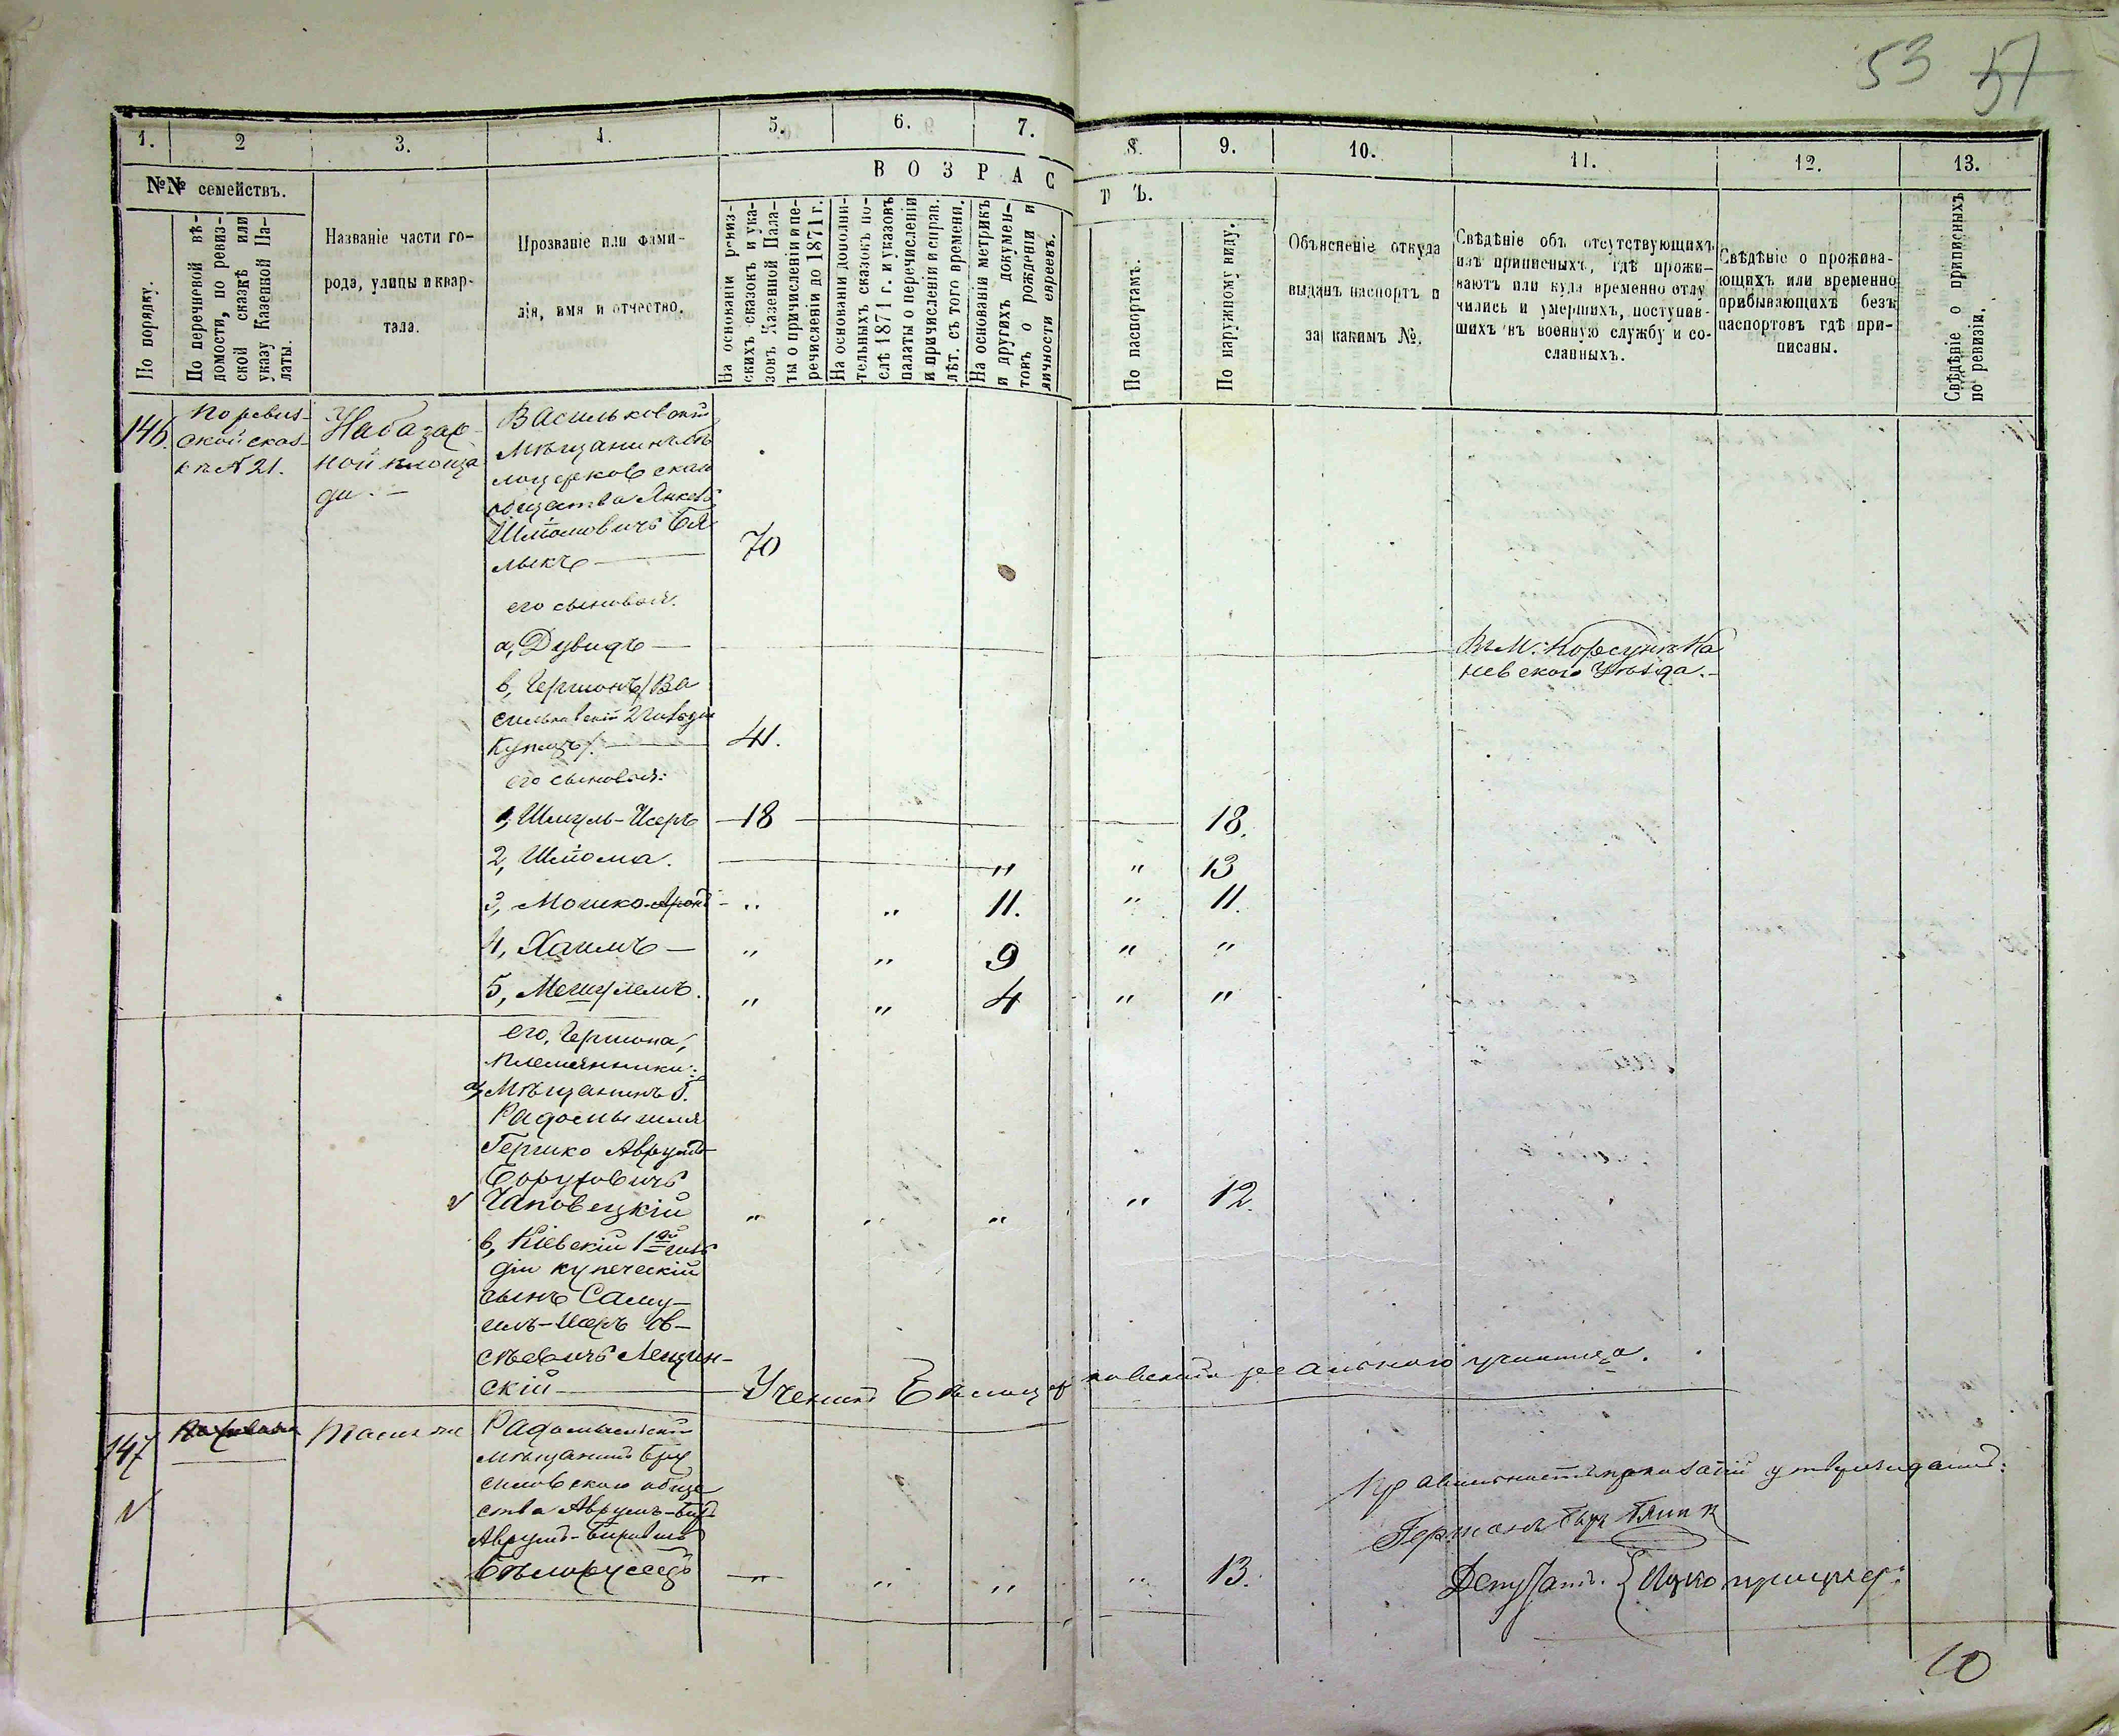 53 57
1. 2 3. 4. 5. 6. 7. 8. 9. 10. 11. 12. 13.
№№ семействъ.
По порядку.
По перечневой вѣ-
домости, по ревиз-
ской сказкѣ или
указу Казенной Па-
латы.
Названіе части го-
рода, улицы и квар-
тала.
Прозваніе или фами-
лія, имя и отчество.
ВОЗРАСТЪ.
На основаніи ревиз-
скихъ сказокъ и ука-
зовъ Казенной Пала-
ты о причисленіи и пе-
речисленіи до 1871 г.
На основаніи дополни-
тельныхъ сказокъ по-
слѣ 1871 г. и указовъ
палаты о перечисленіи
и причисленіи и справ.
лѣт. съ того времени.
На основаніи метрикъ
и другихъ докумен-
товъ о рожденіи и
личности евреевъ.
По паспортамъ.
По наружному виду.
Объясненіе откуда
выданъ паспортъ и
за какимъ №.
Свѣдѣніе объ отсутствующихъ
изъ приписныхъ, гдѣ прожи-
ваютъ или куда временно отлу
чились и умершихъ, поступив-
шихъ въ военную службу и со-
сланныхъ.
Свѣдѣніе о прожива-
ющихъ или временно
прибывающихъ безъ
паспортовъ гдѣ при-
писаны.
Свѣдѣніе о приписныхъ
по ревизіи.
146. По ревиз-
ской сказ-
кѣ № 21.
На базар-
ной площа
ди. —
Васильковскій
мѣщанинъ Бѣ
лоцерковскаго
общества Янкель
Шліомовичъ Бя
лыкъ — 70
его сыновья:
а, Дувидъ — Въ М. Корсунѣ Ка
невскаго Уѣзда. —
в, Гершонъ /Ва
сильковскій 2 гильдіи
купецъ/. — 41.
его сыновья:
1, Шмуль-Исеръ — 18 — 18.
2, Шліома. — " " 13
3, Мошко-Аронъ - " " 11. " 11.
4, Хаимъ — " " 9 " "
5, Мешулемъ. " " 4 " "
его, Гершона,
племянники:
а, Мѣщанинъ г.
Радомысля
Гершко Аврумъ
Боруховичъ
Чаповецкій " " " " 12.
в, Кіевскій 1ой гиль
діи купеческій
сынъ Саму-
илъ-Исеръ Ов-
сѣевичъ
скій — Ученикъ Бѣлоцерковскаго реальнаго училища.
147 Тамъ же
Радомысльскій
мѣщанинъ Бру
силовскаго обще
ства Аврумъ-Беръ
Бѣлорусецъ — " " " " 13.
Правильность показаній утверждаемъ:
Гершонъ Бялик
Депутатъ. {Ицко
10